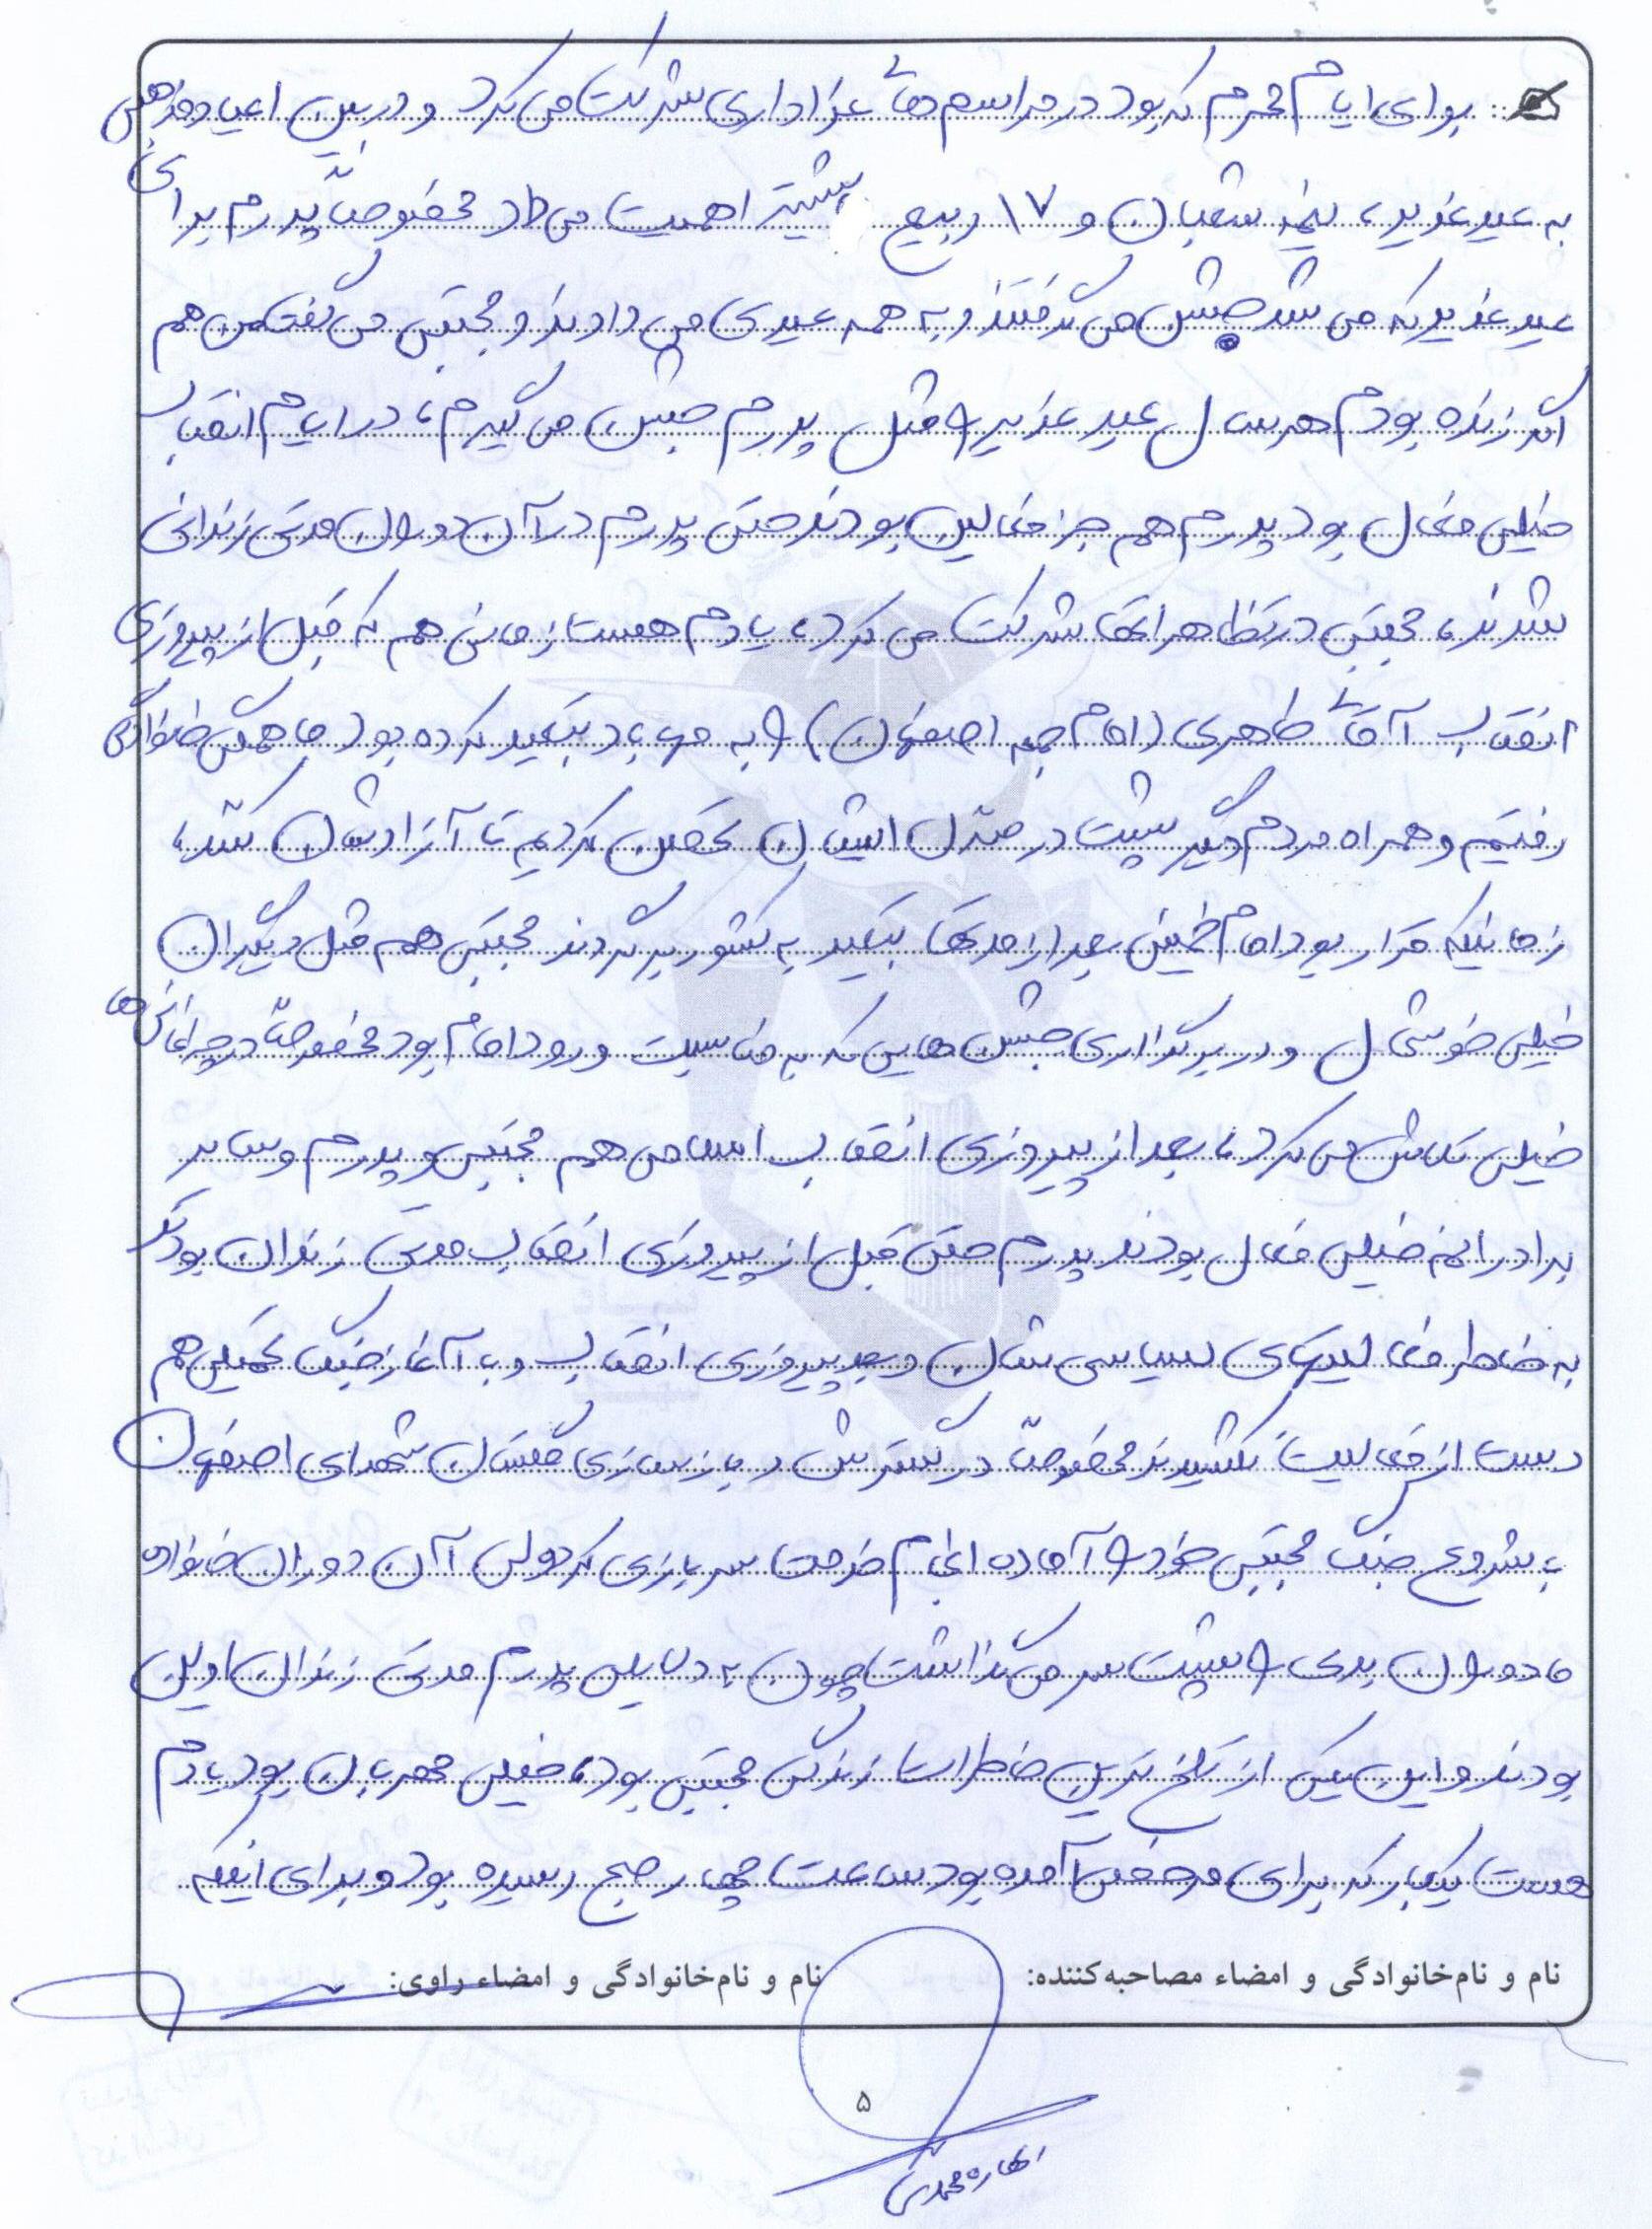 برای ایام محرم که بود در مراسم های عزاداری شرکت می کرد و در بین اعیاد مذهبی
به عید غدیر، نیمه شعبان و ۱۷ ربیع بیشتر اهمیت می داد مخصوصاً پدرم برای
عید غدیر که می شد جشن می گرفتند و به همه عیدی می دادند و مجتبی می گفت من هم
اگر زنده بودم هر سال عید غدیر را مثل پدرم جشن می گیرم، در ایام انقلاب
خیلی فعال بود پدرم هم جز فعالین بودند حتی پدرم در آن دوران مدتی زندانی
شدند، مجتبی در تظاهراتها شرکت می کرد، یادم هست زمانی هم که قبل از پیروزی
انقلاب آقای طاهری (امام جمعه اصفهان) را به مهاباد تبعید کرده بود ما همگی خانوادگی
رفتیم و همراه مردم دیگر پشت در منزل ایشان تحصن کردیم تا آزادشان کنند،
زمانیکه قرار بود امام خمینی بعد از مدتها تبعید به کشور برگردند مجتبی هم مثل دیگران
خیلی خوشحال و در برگزاری جشن هایی که به مناسبت ورود امام بود مخصوصاً در چراغانی ها
خیلی تلاش می کرد، بعد از پیروزی انقلاب اسلامی هم مجتبی و پدرم و سایر
برادرانم خیلی فعال بودند پدرم حتی قبل از پیروزی انقلاب مدتی زندان بودند
به خاطر فعالیتهای سیاسی شان و بعد پیروزی انقلاب و با آغاز جنگ تحمیلی هم
دست از فعالیت نکشیدند مخصوصاً در گسترش و بازسازی گلستان شهدای اصفهان
با شروع جنگ مجتبی خود را آماده انجام خدمت سربازی کرد ولی آن دوران خانواده
ما دوران بدی را پشت سر می گذاشت چون به دلایلی پدرم مدتی زندان اوین
بودند و این یکی از تلخ ترین خاطرات زندگی مجتبی بود، خیلی مهربان بود یادم
هست یکبار که برای مرخصی آمده بود ساعت چهار صبح رسیده بود و برای اینکه
نام و نام‌خانوادگی و امضاء مصاحبه‌کننده: نام و نام‌خانوادگی و امضاء راوی:
۵